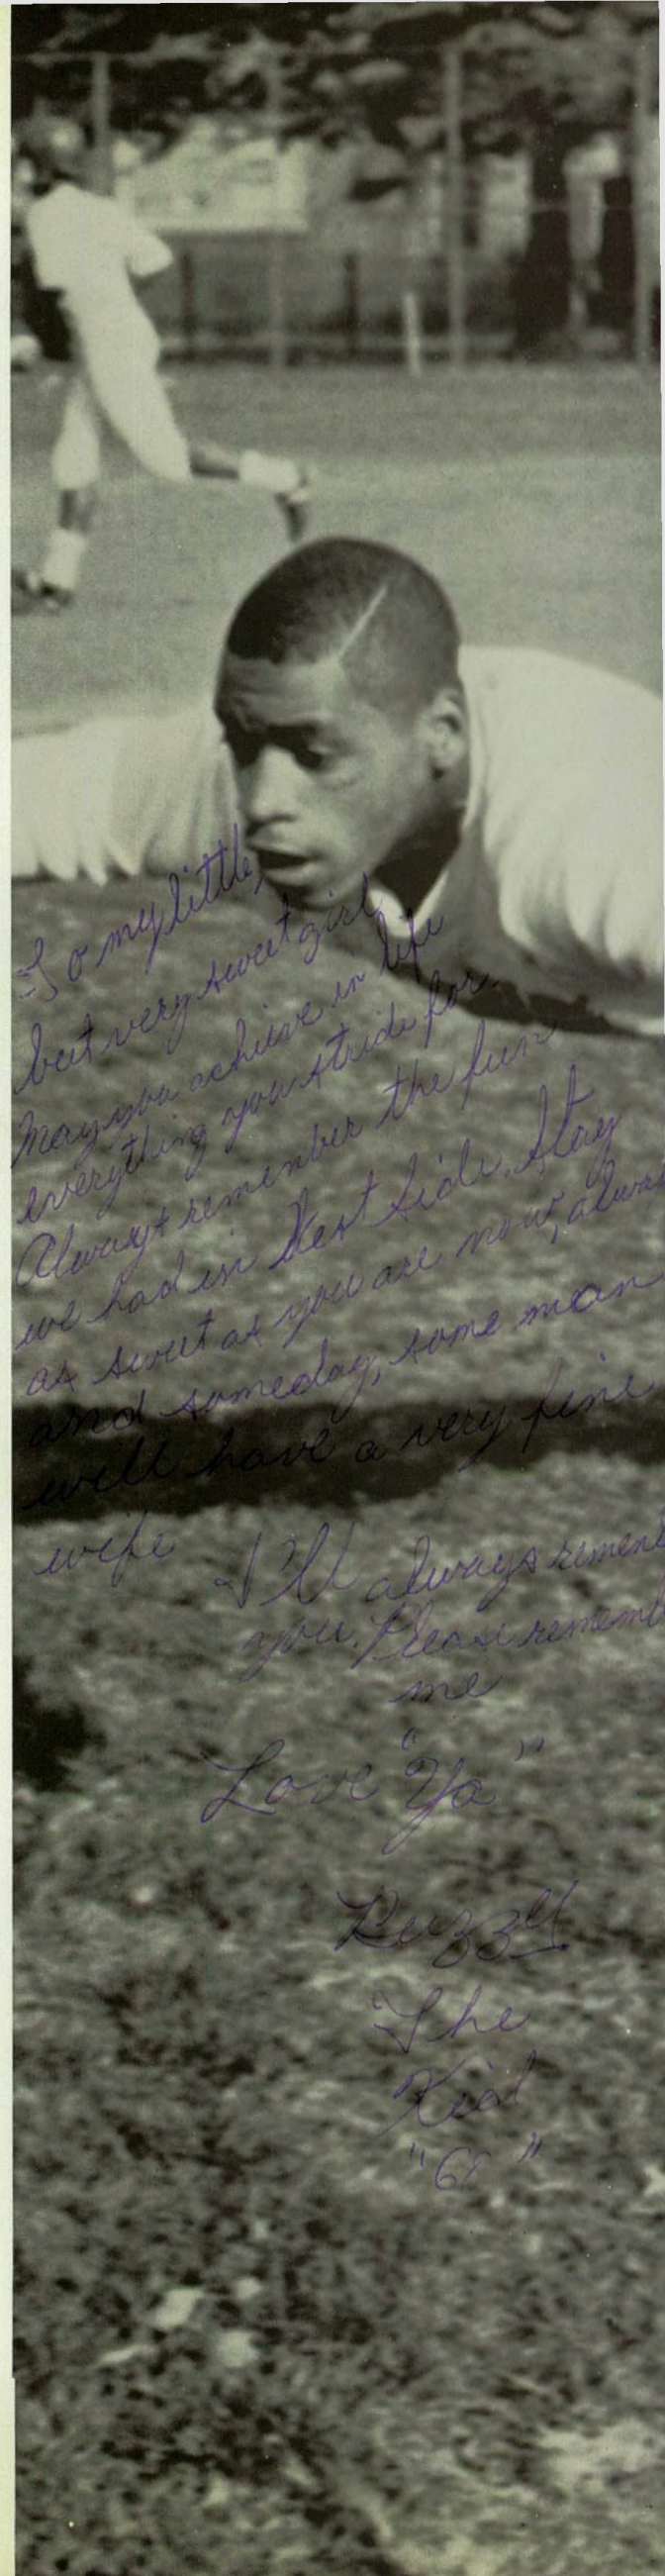 To my little,
but very sweet girl
May you achieve in life
everything you stride for.
Always remember the fun
we had in West Side. Stay
as sweet as you are now, alwa
and someday, some man
will have a very fine
wife I'll always remem
you. Please rememb
me
Love "Ya"
The
Kid